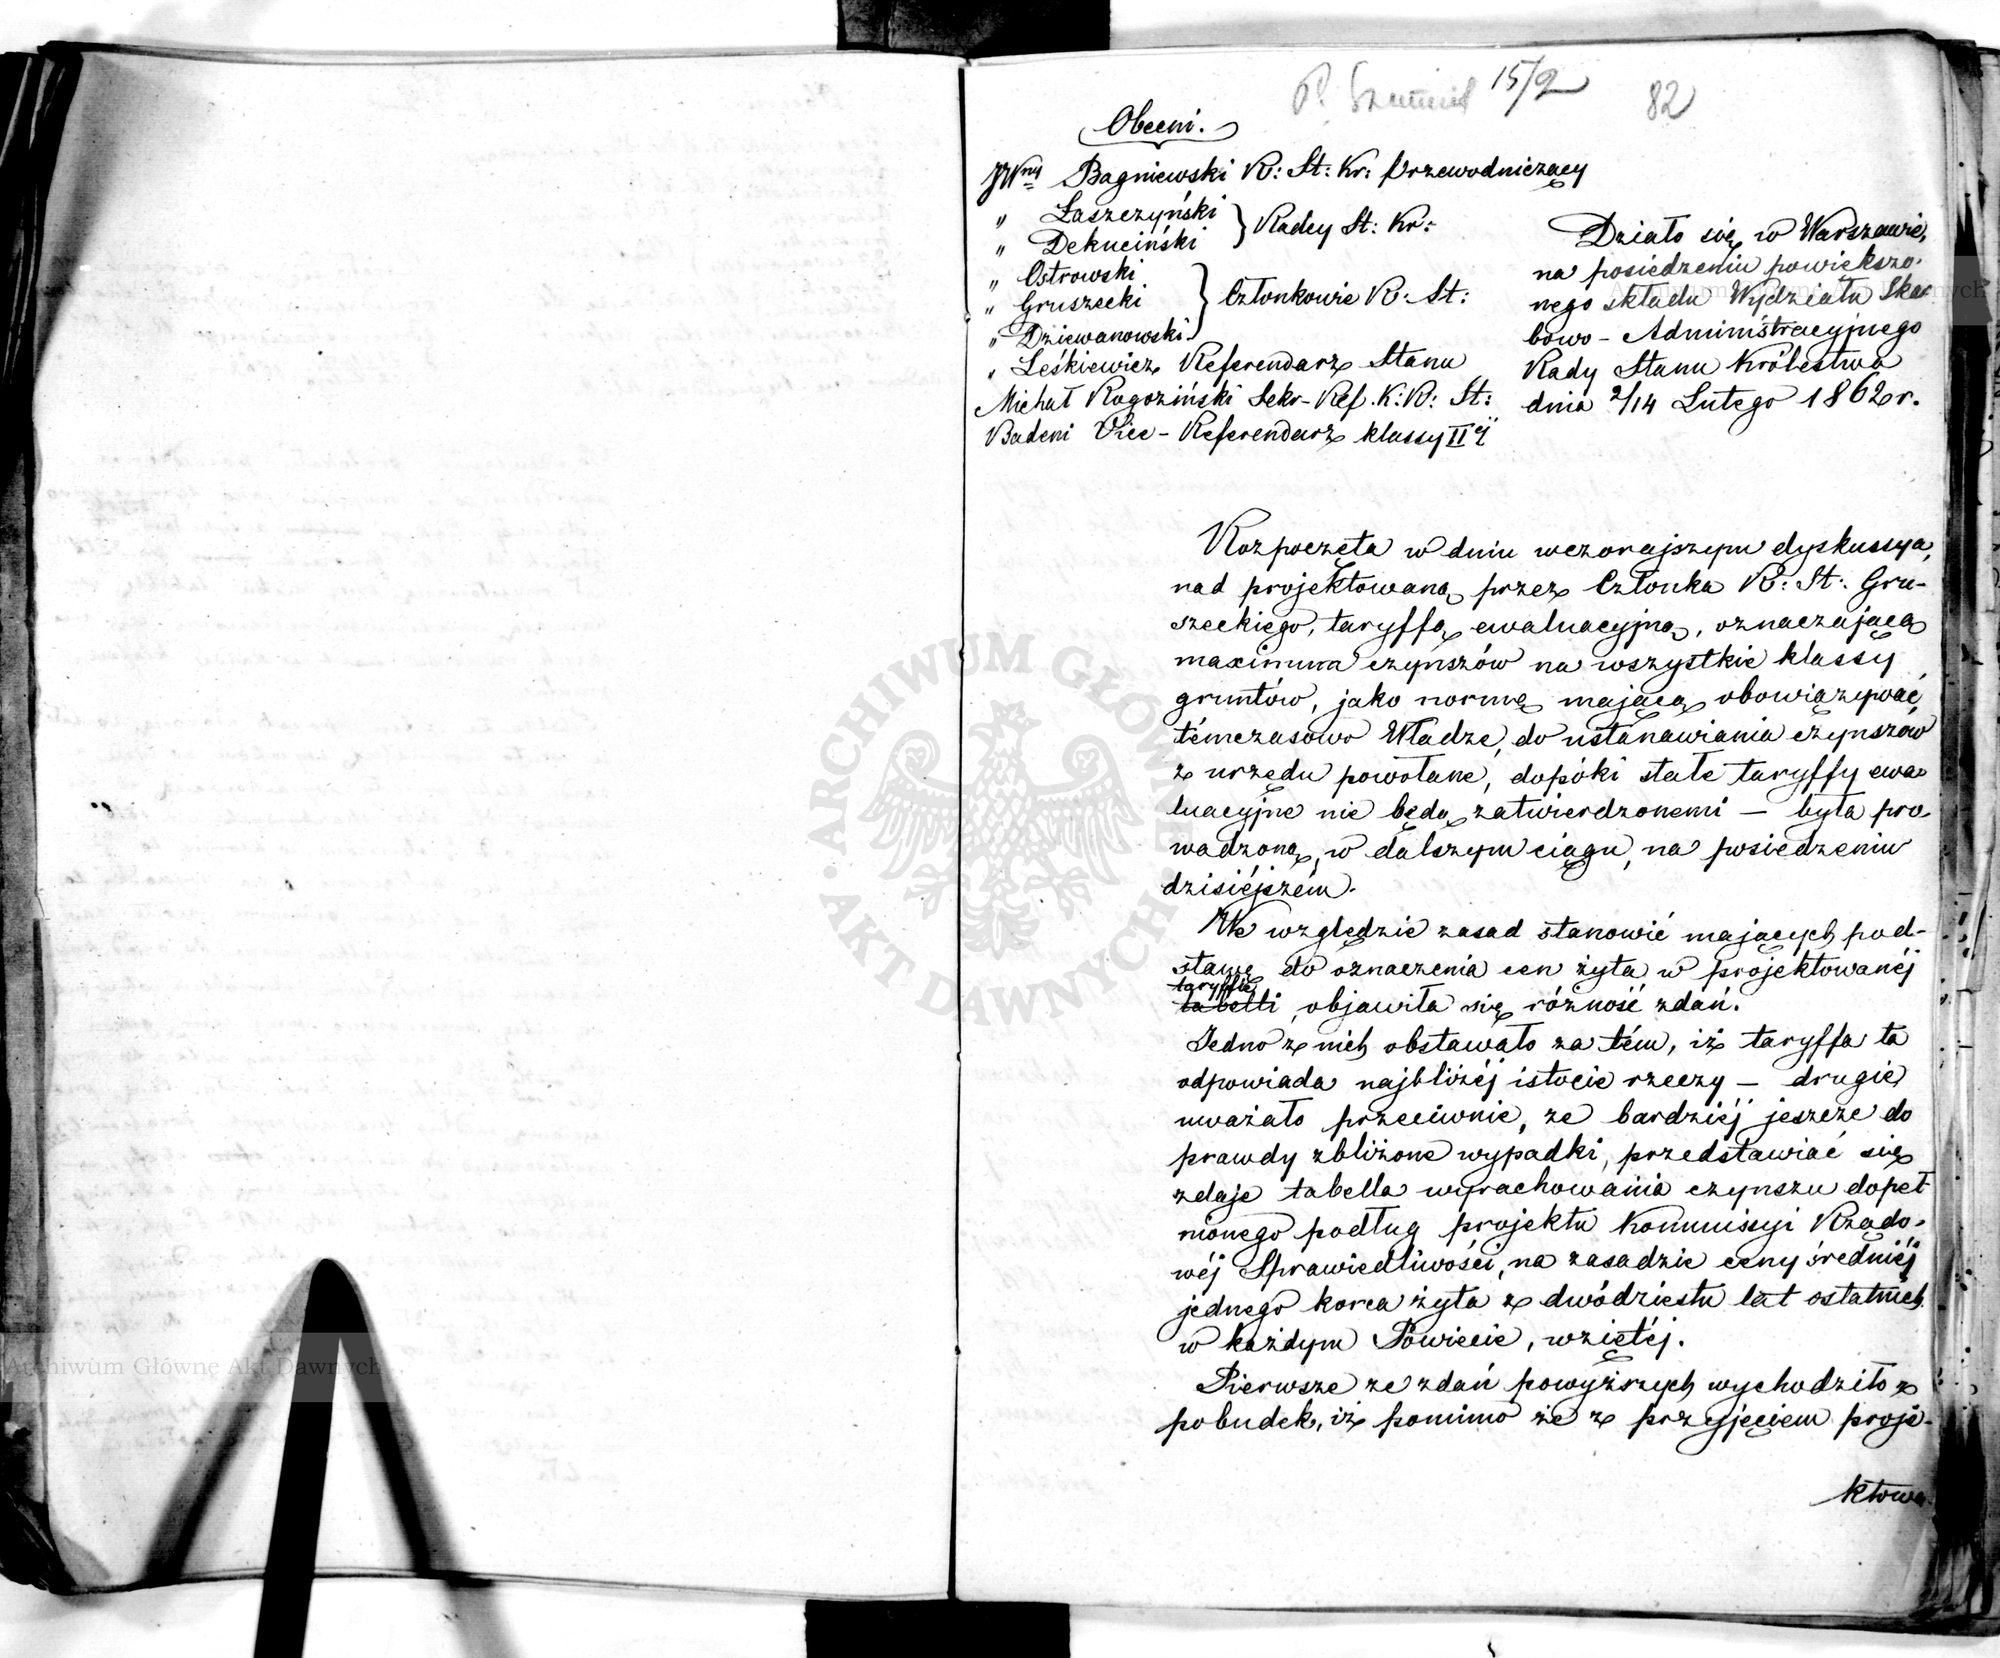 15/2
82
Obecni.
JWny Bagniewski R: St: Kr: Przewodniczący
" Łaszczyński
" Dekuciński
Radcy St: Kr:
" Ostrowski
" Gruszecki
" Dziewanowski
Członkowie R: St:
" Leśkiewicz Referendarz Stanu
Michał Rogoziński Sekr-Ref. K: R: St:
Badeni Vice-Referendarz klassy II éj
Działo się w Warszawie,
na posiedzeniu powiększo-
nego składu Wydziału Skar
bowo-Administracyjnego
Rady Stanu Królestwa
dnia 2/14 Lutego 1862 r.
Rozpoczęta w dniu wczorajszym dyskussya,
nad projektowaną przez Członka R: St: Gru-
szeckiego, taryffą ewaluacyjną, oznaczającą
maximum czynszów na wszystkie klassy
gruntów, jako normę mającą obowiązywać
témczasowo Władze, do ustanawiania czynszów
z urzędu powołane, dopóki stałe taryffy ewa-
luacyjne nie będą zatwierdzonemi — była pro-
wadzoną, w dalszym ciągu, na posiedzeniu
dzisiéjszém.
We względzie zasad stanowić mających pod-
stawę do oznaczenia cen żyta w projektowanéj
taryffie
tabelli, objawiła się różność zdań.
Jedno z nich obstawało za tém, iż taryffa ta
odpowiada najbliżéj istocie rzeczy — drugie
uważało przeciwnie, że bardziéj jeszcze do
prawdy zbliżone wypadki, przedstawiać się
zdaje tabella wyrachowania czynszu dopeł
nionego podług projektu Kommissyi Rządo-
wéj Sprawiedliwości, na zasadzie ceny średniéj
jednego korca żyta z dwódziestu lat ostatnich
w każdym Powiecie, wziętéj.
Pierwsze ze zdań powyższych wychodziło z
pobudek, iż pomimo że z przyjęciem proje-
ktowa
Archiwum Główne Akt Dawnych
ARCHIWUM GŁÓWNE AKT DAWNYCH
Archiwum Główne Akt Dawnych